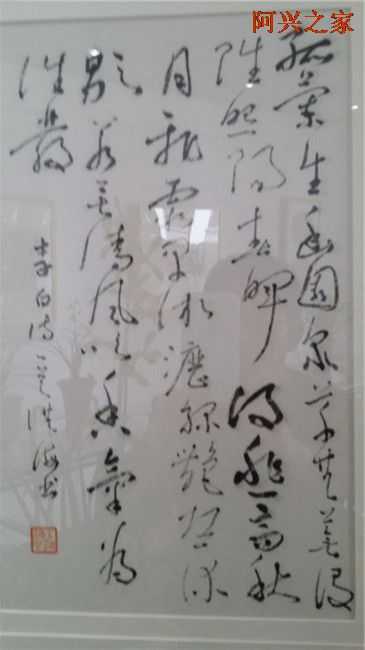 阿兴之家
孤蘭生幽園眾草共蕪沒
雖照陽春暉復悲高秋
月飛霜早淅瀝綠艷恐休
歇若無清風吹香氣為
誰發
李白詩一首 書